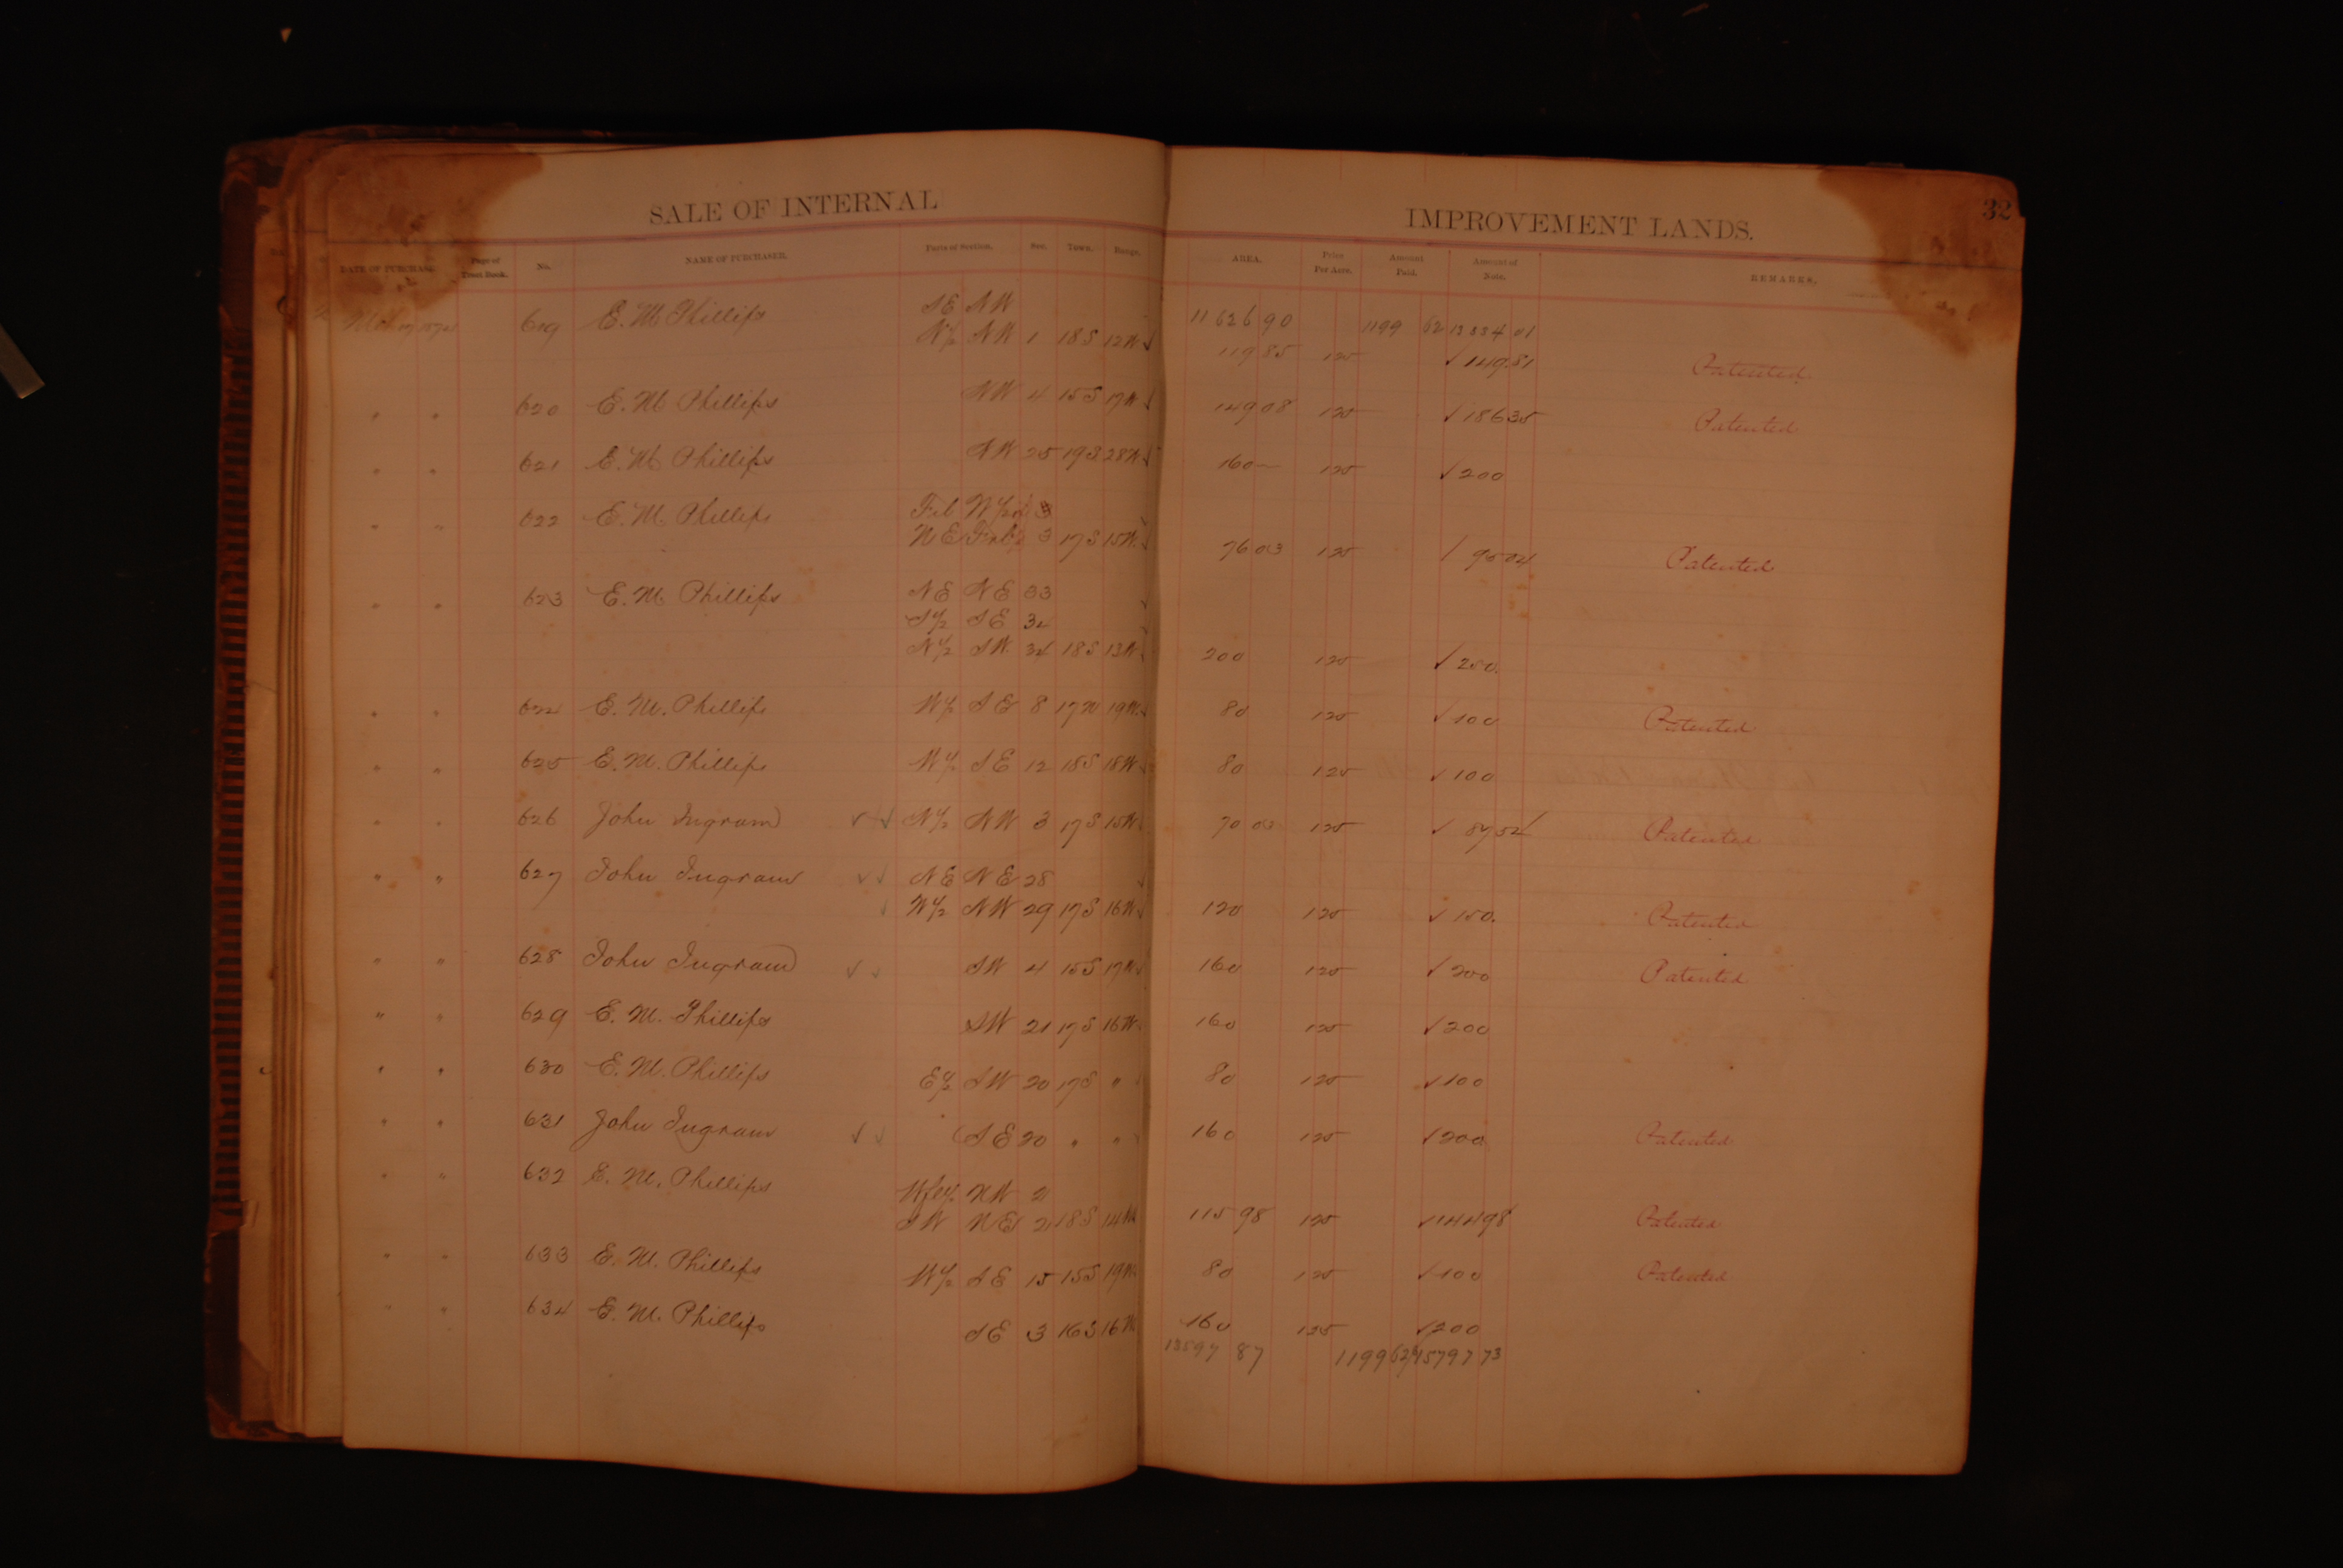 SALE OF INTERNAL IMPROVEMENT LANDS. 32
DATE OF PURCHASE Page of Tract Book. No. NAME OF PURCHASER. Parts of Section. Sec. Town. Range. AREA. Price Per Acre. Amount Paid. Amount of Note. REMARKS.
619 E. M. Phillips SE NW 11626 90 1199 62 13334 01
N½ NW 1 18S 12W √ 119 85 125 √ 149 81 Patented
" " 620 E. M. Phillips NW 4 15S 17W √ 149 08 125 √ 186 35 Patented
" " 621 E. M. Phillips NW 25 19S 28W √ 160 — 125 √ 200
" " 622 E. M. Phillips Frl W½
NE Frl ½ 3 17S 15W √ 76 03 125 √ 95 04 Patented
" " 623 E. M. Phillips NE NE 33 √
S½ SE 34
N½ SW 34 18S 13W √ 200 125 √ 250.
" " 624 E. M. Phillips W½ SE 8 17W 19W √ 80 125 √ 100 Patented
" " 625 E. M. Phillips W½ SE 12 18S 18W √ 80 125 √ 100
" " 626 John Ingram √ √ N½ NW 3 17S 15W 70 03 125 √ 87 54 Patented
" " 627 John Ingram √ √ NE NE 28 √
√ W½ NW 29 17S 16W √ 120 125 √ 150. Patented
" " 628 John Ingram √ √ SW 4 15S 17W √ 160 125 √ 200 Patented
" " 629 E. M. Phillips SW 21 17S 16W 160 125 √ 200
" " 630 E. M. Phillips E½ SW 20 17S " 80 125 √ 100
" " 631 John Ingram √ √ SE 20 " " 160 125 √ 200 Patented
" " 632 E. M. Phillips NW 2
SW NE 2 18S 14W 115 98 125 √ 144 98 Patented
" " 633 E. M. Phillips W½ SE 15 15S 19W 80 125 √ 100 Patented
" " 634 E. M. Phillips SE 3 16S 16W 160 125 √ 200
13597 87 1199 62 15797 73